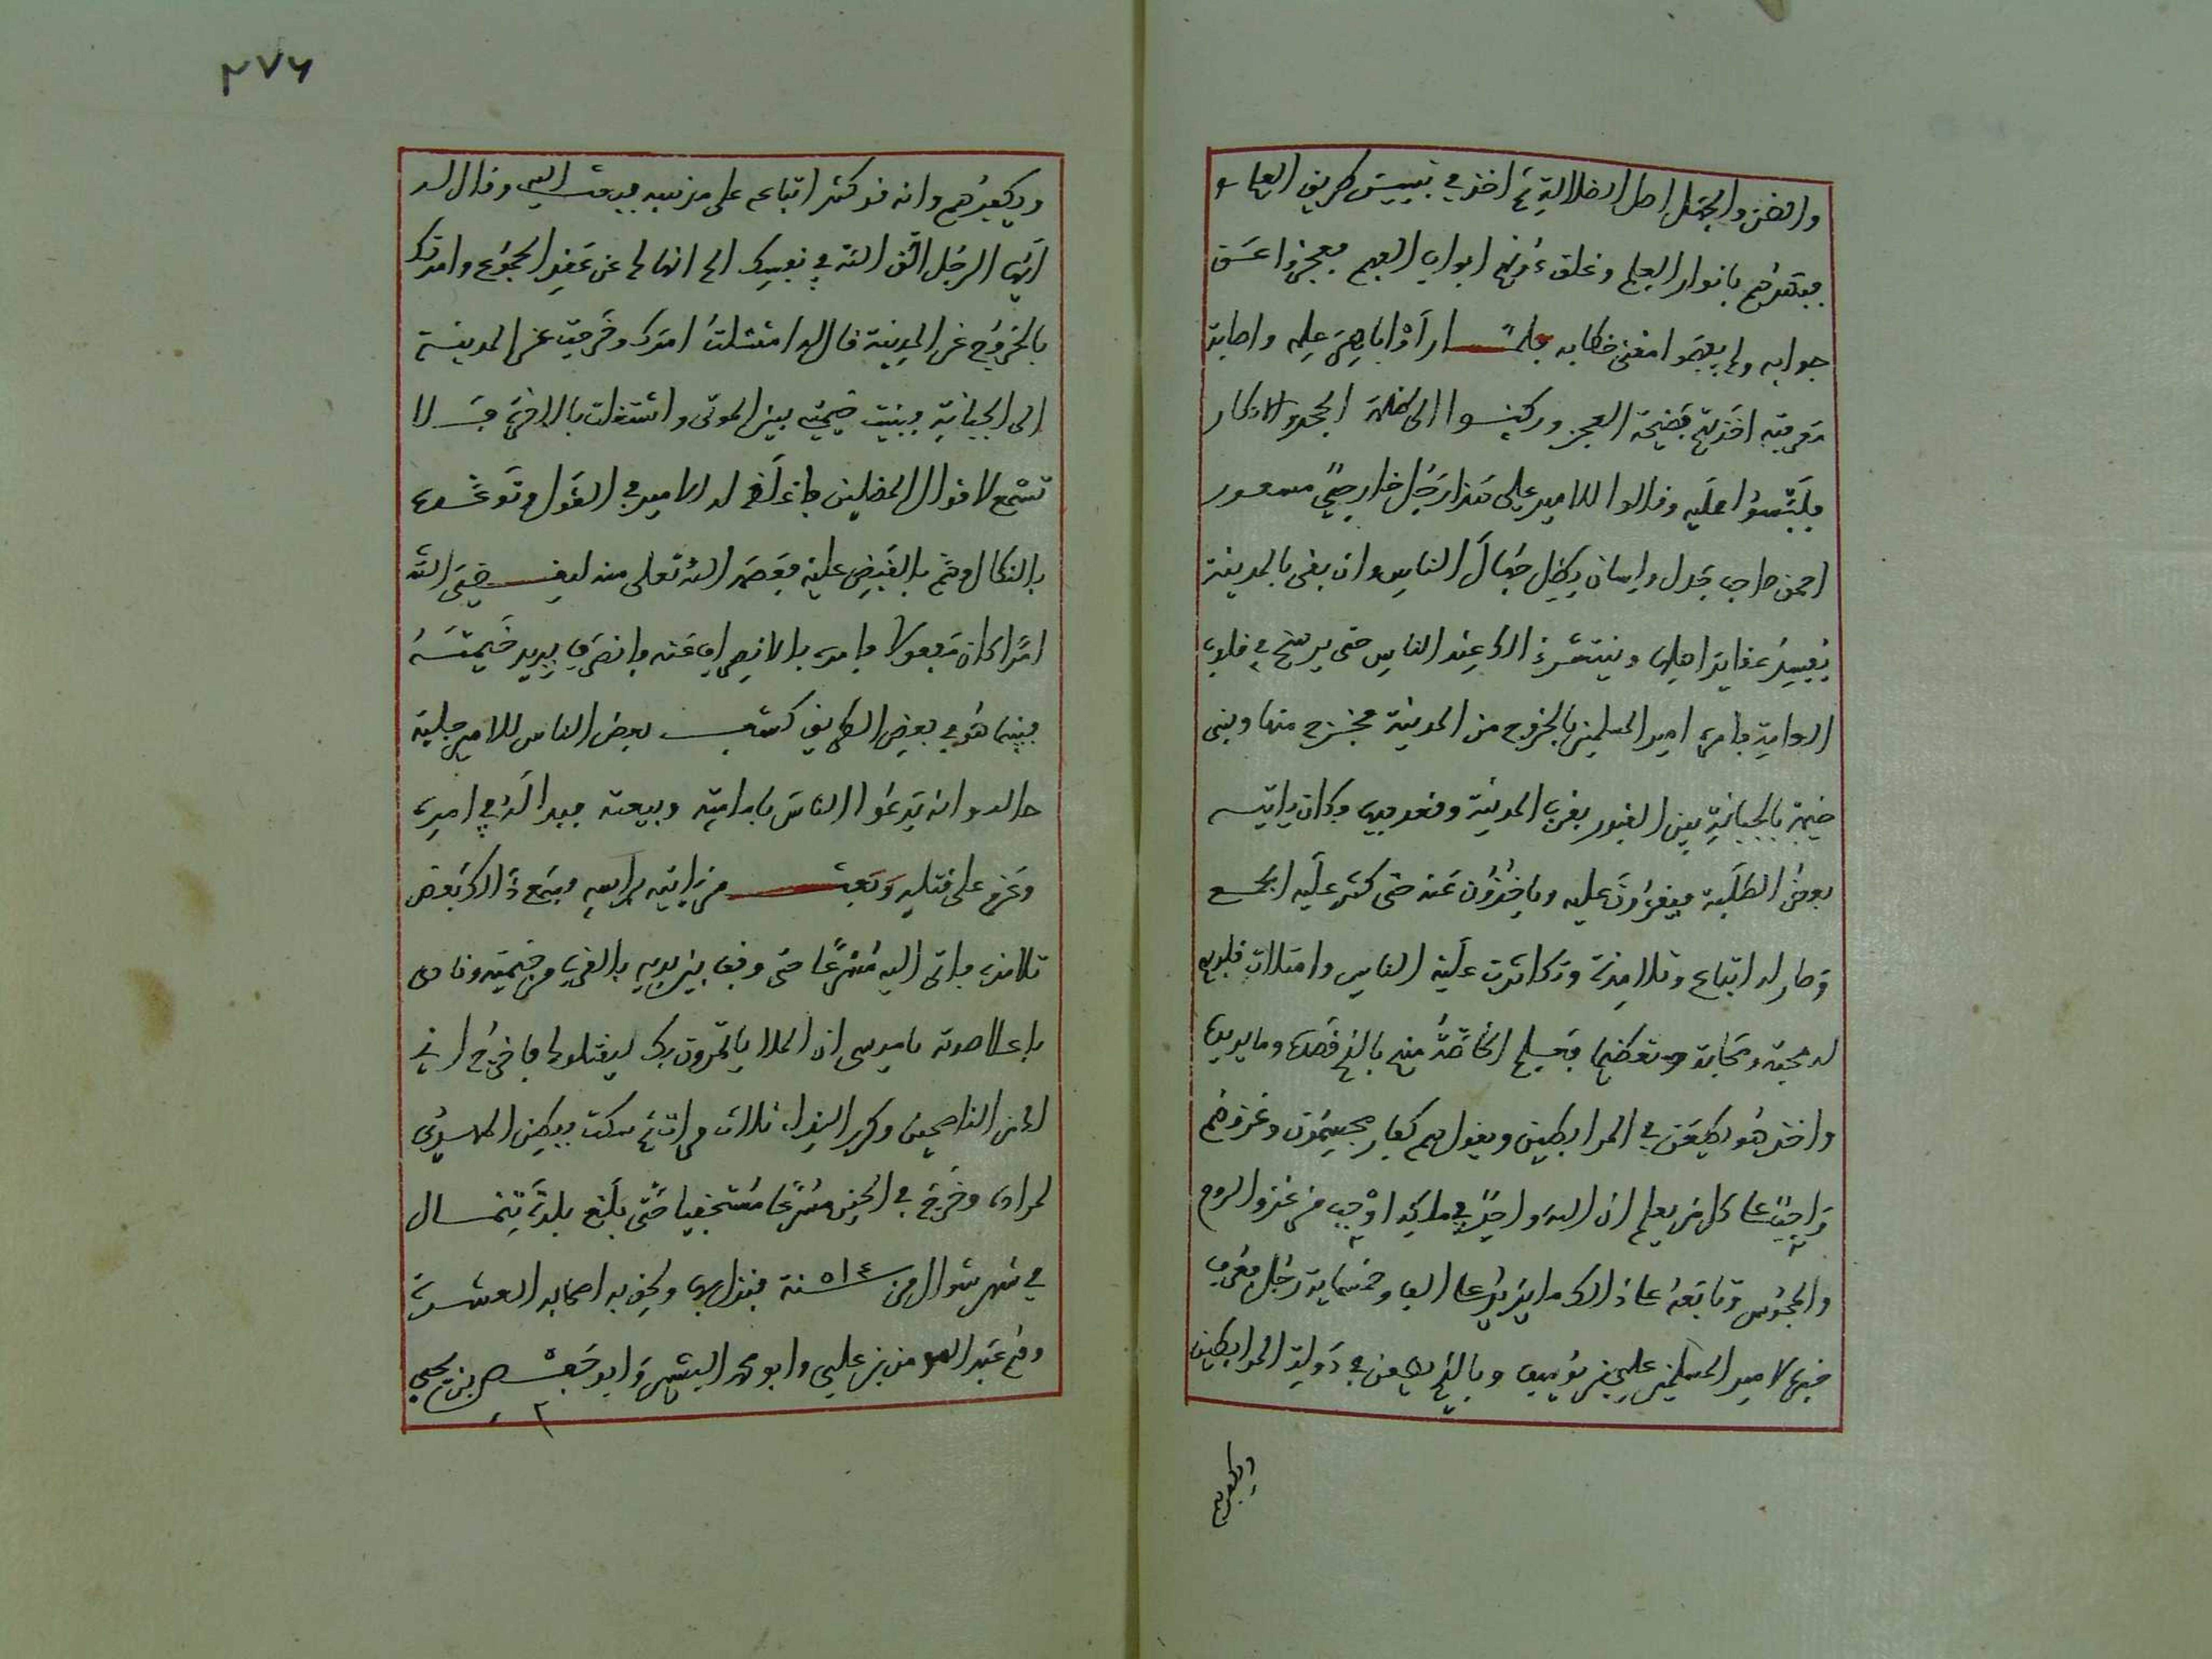 والظن والجهل اصل الضلالة ثم اخذ في تبيين طريق العلم
فبهرهم بانوار العلم وغلق دونهم ابواب الفهم فعجزوا عن
جوابه ولم يفهموا معنى خطابه فلما راوا باهر علمه واصابة
اخذتهم فضيحة العجز وركنوا الى ظلمة الجحد والانكار
فلبسوا عليه وقالوا للامير علي هذا رجل خارجي مسعور
احمق صاحب جدل ولسان يضل جهال الناس وان بقي بالمدينة
يفسد عقايد اهلها وينتشر ذلك عند الناس حتى يرسخ في قلوب
العامة فامره امير المسلمين بالخروج من المدينة فخرج منها وبنى
خيمة بالجبانة بين القبور بقرب المدينة وقعد فيها وكان ياتيه
بعض الطلبة فيقرؤن عليه وياخذون عنه حتى كثر عليه الجمع
وصار له اتباع وتلامذة وتكاثرت عليه الناس وامتلات قلوبهم
له محبة ومهابة وتعظيما فيعلم الخاصة منهم بالذي قصده وما يريده
واخذ هو يطعن في المرابطين ويقول هم كفار مجسمون وغزوهم
واجب على كل من يعلم ان الله واحد في ملكه اوجب من غزو الروم
والمجوس وتابعه على ذلك ما يزيد على الف وخمسماية رجل فعرف
فيها لامير المسلمين علي بن يوسف وبانه يطعن في دولة المرابطين
ويكفرهم
٢٧٦
ويكفرهم وانه قد كثر اتباعه على مذهبه فبعث اليه وقال له
ايها الرجل اتق الله في نفسك الم انهاك عن عقد الجموع وامرتك
بالخروج عن المدينة قال له امتثلت امرك وخرجت عن المدينة
الى الجبانة فبنيت خيمتي بين الموتى واشتغلت بالاخرة فلا
تسمع لاقوال المضلين فاغلظ له الامير في القول وتوعده
بالنكال وهم بالقبض عليه فعصمه الله تعلى منه ليقضي الله
امرا كان مفعولا فامره بالانصراف عنه فانصرف يريد خيمته
فبينما هو في بعض الطريق كشف بعض الناس للامير جلية
حاله وانه يدعوا الناس بامامته وبيعته فبدا له في امره
وعزم على قتله وبعث من ياتيه براسه فسمع ذلك بعض
تلامذته فاتى اليه مسرعا حتى وقف بين يديه بالقرب من خيمته ونادى
باعلا صوته يا موسى ان الملا ياتمرون بك ليقتلوك فاخرج اني
لك من الناصحين وكرر النداء ثلاث مرات ثم سكت ففطن المهدي
لمراده وخرج في الحين مسرعا مستخفيا حتى بلغ بلدة تينمال
في شهر شوال من سنة ٥١٤ فنزل بها ولحق به اصحابه العشرة
وهم عبد المومن بن علي وابو محمد البشير وابو حفص بن يحيى